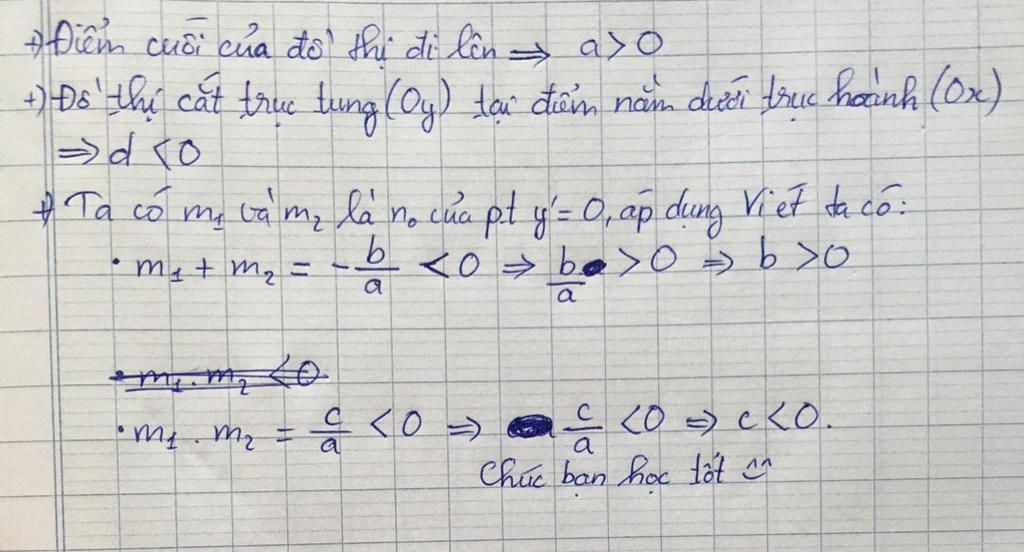 +) Điểm cuối của đồ thị đi lên ⇒ a > 0
+) Đồ thị cắt trục tung (Oy) tại điểm nằm dưới trục hoành (Ox)
⇒ d < 0
+) Ta có m₁ và m₂ là n₀ của pt y' = 0, áp dụng Viét ta có:
• m₁ + m₂ = -b/a < 0 ⇒ b/a > 0 ⇒ b > 0
• m₁ . m₂ < 0
• m₁ . m₂ = c/a < 0 ⇒ c/a < 0 ⇒ c < 0.
Chúc bạn học tốt ^^